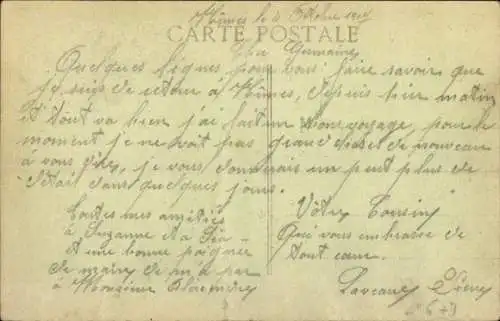 Nîmes le 2 Octobre 1919
CARTE POSTALE
Germaine
Quelques lignes pour vous faire savoir que
je suis de retour à Nîmes, depuis hier matin
et tout va bien j'ai fait un bon voyage, pour le
moment je ne vait pas grand chose de nouveau
à vous dire, je vous donnerais un peut plus de
détail dans quelques jours.
Toutes mes amitiés
à Suzanne et à
et une bonne poignée
de main de m'a par
à Monsieur
Votre Cousin
Qui vous embrasse de
tout cœur.